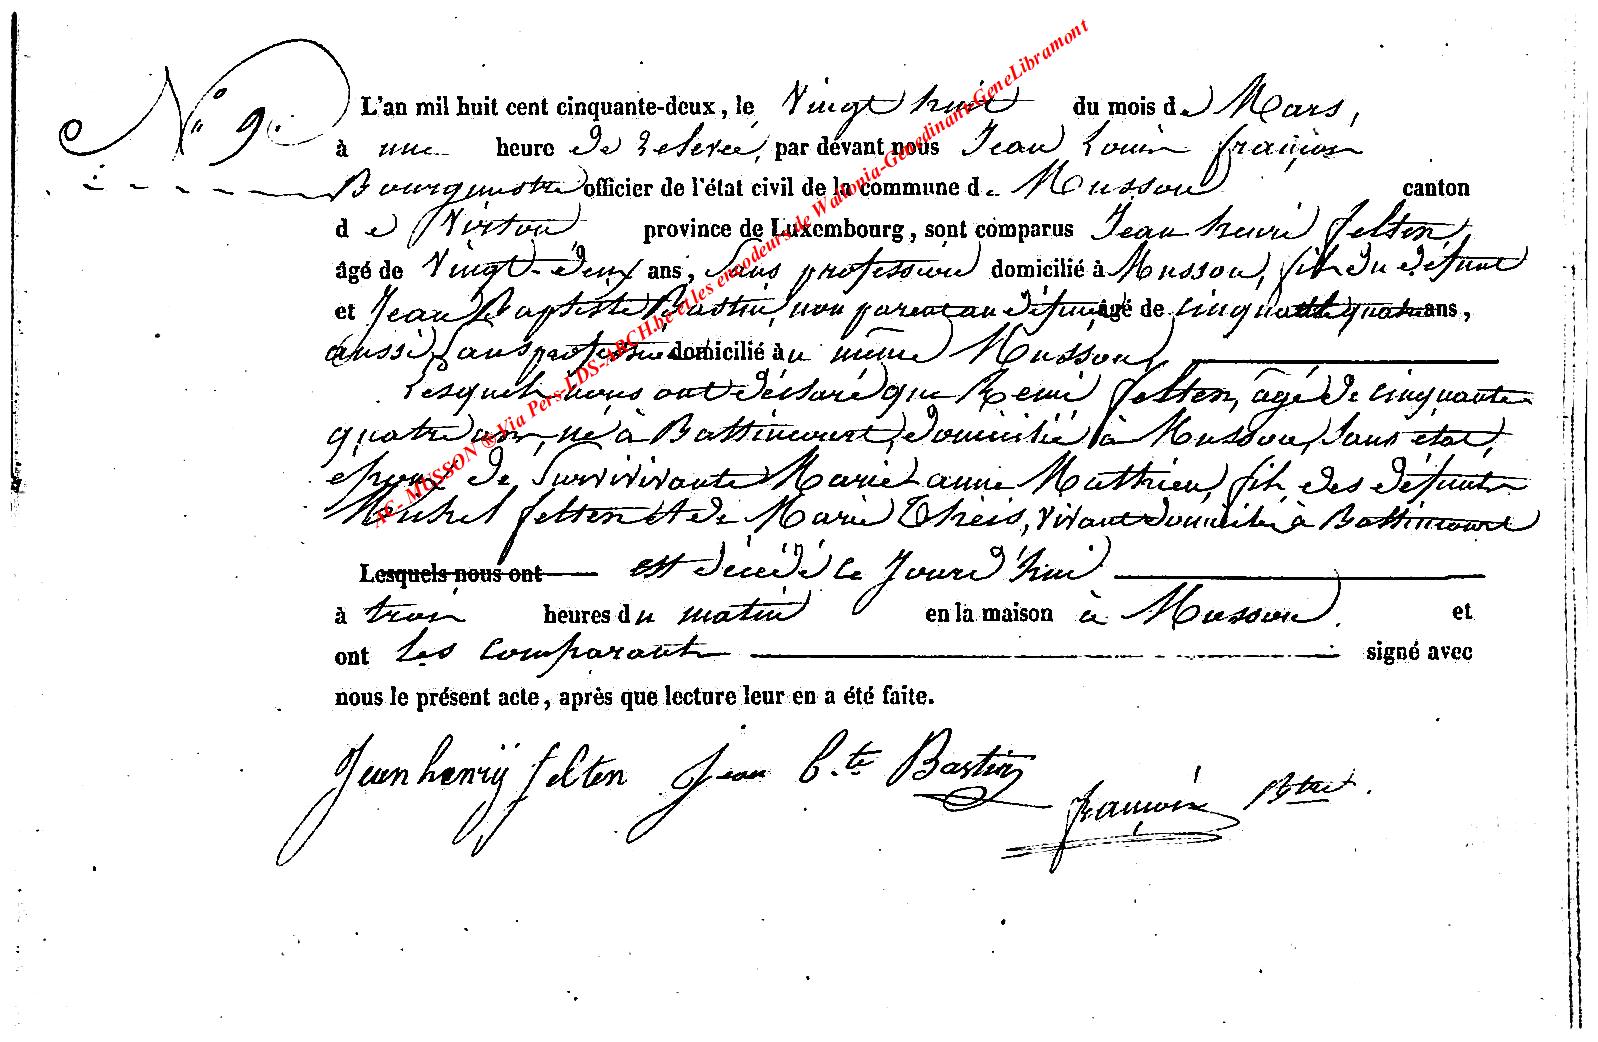 N° 9. L'an mil huit cent cinquante-deux, le vingt huit du mois de Mars,
à une heure de relevée, par devant nous Jean Louis françois
Bourguestre officier de l'état civil de la commune de Musson canton
de Virton province de Luxembourg, sont comparus Jean henri felten,
âgé de vingt-deux ans, sans profession domicilié à Musson, fils du défunt
et Jean Baptiste Bastin, non parent au défunt âgé de cinquante quatre ans,
aussi sans profession domicilié au même Musson,
Lesquels nous ont déclaré que Remi felten, âgé de cinquante
quatre ans, né à Battincourt, domicilié à Musson, sans état,
epoux de survivivante Marie anne Mathieu, fils des défunts
Michel felten et de Marie Theis, vivant domiciliés à Battincourt
Lesquels nous ont est décédé ce jourd'hui
à trois heures du matin en la maison à Musson. et
ont les comparants signé avec
nous le présent acte, après que lecture leur en a été faite.
Jean henrÿ felten Jean b.te Bastin
françois Btre.
AC- MUSSON ® Via Pers-LDS-ARCH.be et les encodeurs de Wallonia-Genedinant-GeneLibramont